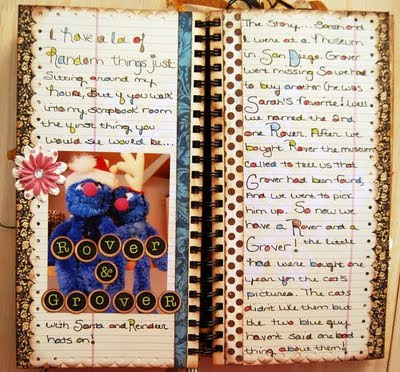 I have a lot of
Random things just
Sitting around my
house. But if you walk
into my scrapbook room
the first thing you
would see would be...
Rover
&
Grover
with Santa and Reindeer
hats on!
The Story... Sarah and
I were at a museum
in San Diego. Grover
went missing so we had
to buy another (he was
Sarah's favorite!) Well
we named the 2nd
one Rover. After we
bought Rover the museum
called to tell us that
Grover had been found,
And we went to pick
him up. So now we
have a Rover and a
Grover! the little
had were bought one
year for the cat's
pictures. The cats
didn't like them but
the two blue guy
haven't said one bad
thing about them!